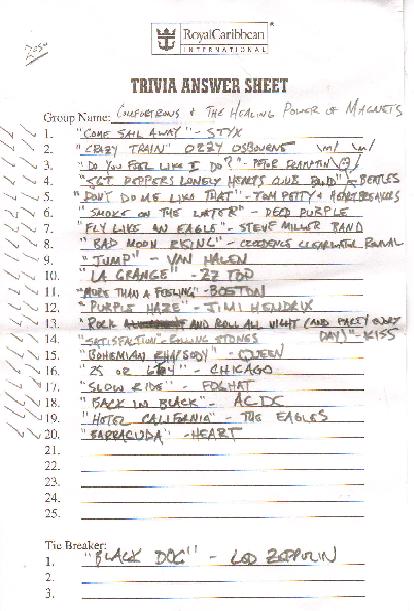 RoyalCaribbean®
INTERNATIONAL
TRIVIA ANSWER SHEET
Group Name: COMFORTRONS & THE HEALING POWER OF MAGNETS
1. "COME SAIL AWAY" - STYX
2. "CRAZY TRAIN" OZZY OSBOURNE \m/ \m/
3. "DO YOU FEEL LIKE I DO?" - PETER FRAMPTON
4. "SGT PEPPERS LONELY HEARTS CLUB BAND" - BEATLES
5. "DON'T DO ME LIKE THAT" - TOM PETTY & HEARTBREAKERS
6. "SMOKE ON THE WATER" - DEEP PURPLE
7. "FLY LIKE AN EAGLE" - STEVE MILLER BAND
8. "BAD MOON RISING" - CREEDENCE CLEARWATER REVIVAL
9. "JUMP" - VAN HALEN
10. "LA GRANGE" - ZZ TOP
11. "MORE THAN A FEELING" - BOSTON
12. "PURPLE HAZE" - JIMI HENDRIX
13. "ROCK AND ROLL ALL NIGHT (AND PARTY EVERY
DAY)" - KISS
14. "SATISFACTION" - ROLLING STONES
15. "BOHEMIAN RHAPSODY" - QUEEN
16. "25 OR 6 TO 4" - CHICAGO
17. "SLOW RIDE" - FOGHAT
18. "BACK IN BLACK" - AC DC
19. "HOTEL CALIFORNIA" - THE EAGLES
20. "BARRACUDA" - HEART
21.
22.
23.
24.
25.
Tie Breaker:
1. "BLACK DOG" - LED ZEPPELIN
2.
3.